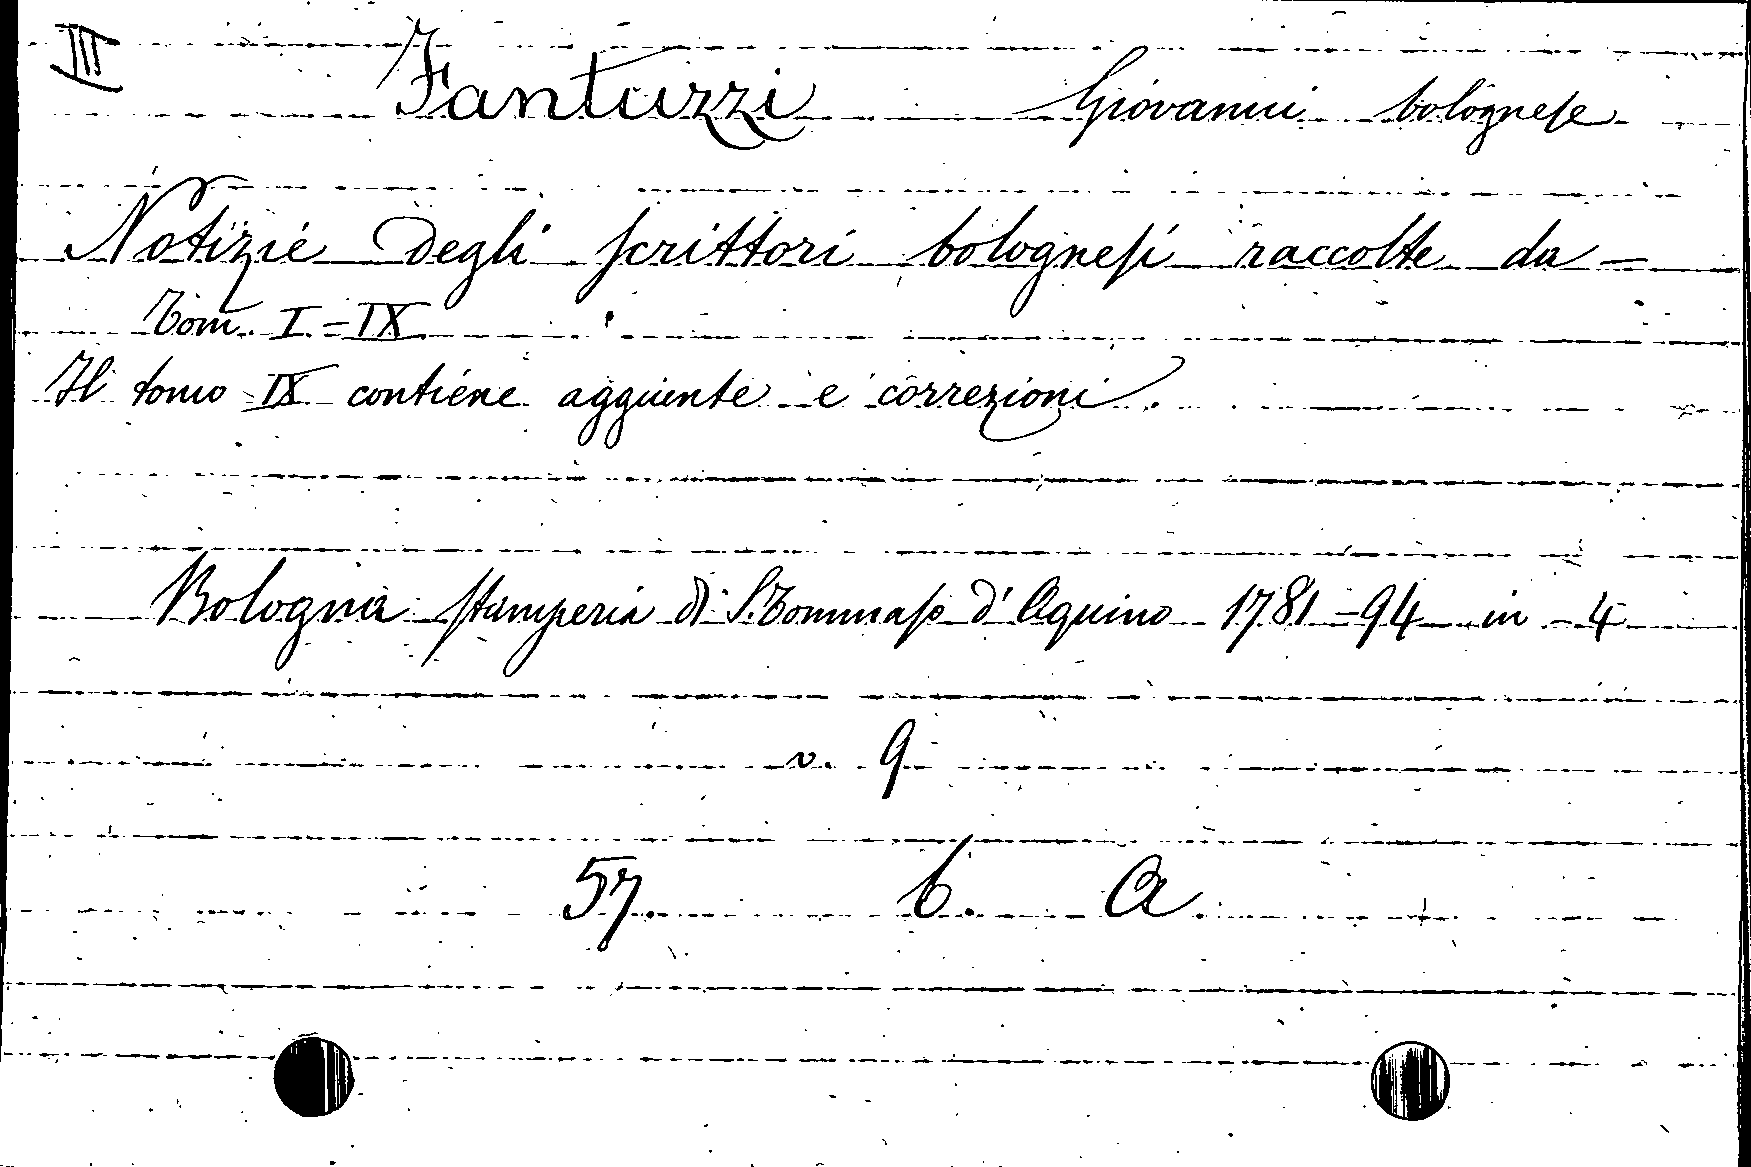 III Fantuzzi Giovanni bolognese
Notizie degli scrittori bolognesi raccolte da —
Tom. I - IX
Il tomo IX contiene aggiunte e correzioni.
Bologna stamperia di S. Tommaso d'Aquino 1781-94 in -4
v. 9
57. b. A.